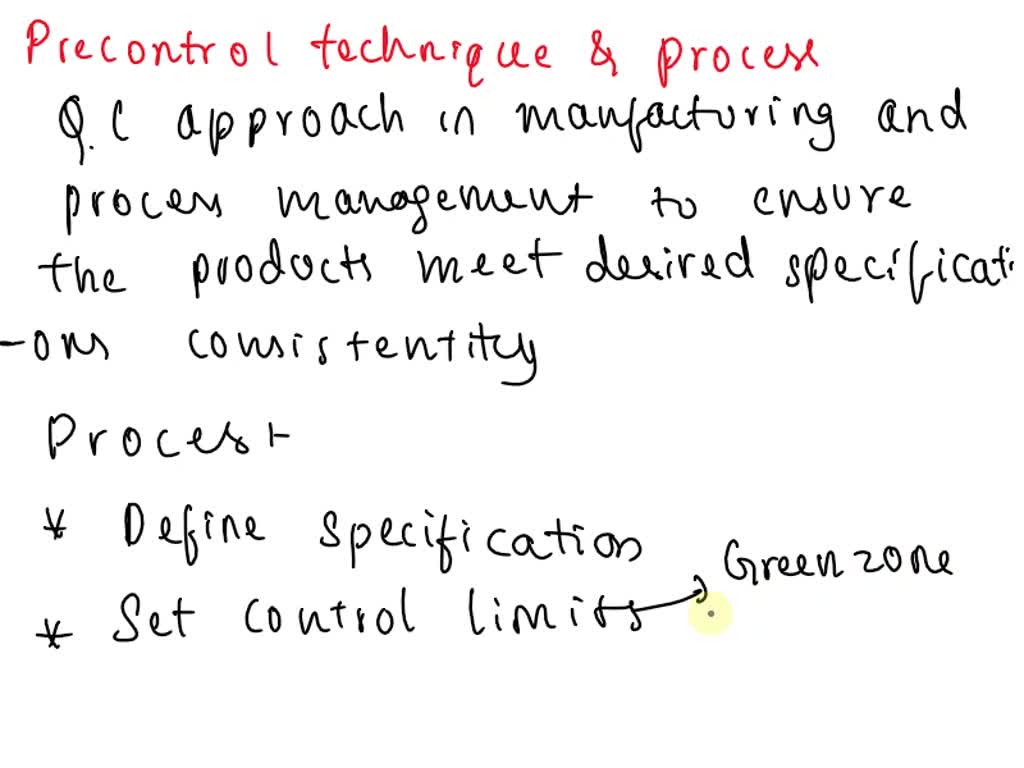 Precontrol technique & process
Q.C approach in manfacturing and
process management to ensure
the products meet desired specificati
-ons consistentity
Process
* Define specification
* Set control limits → Green zone